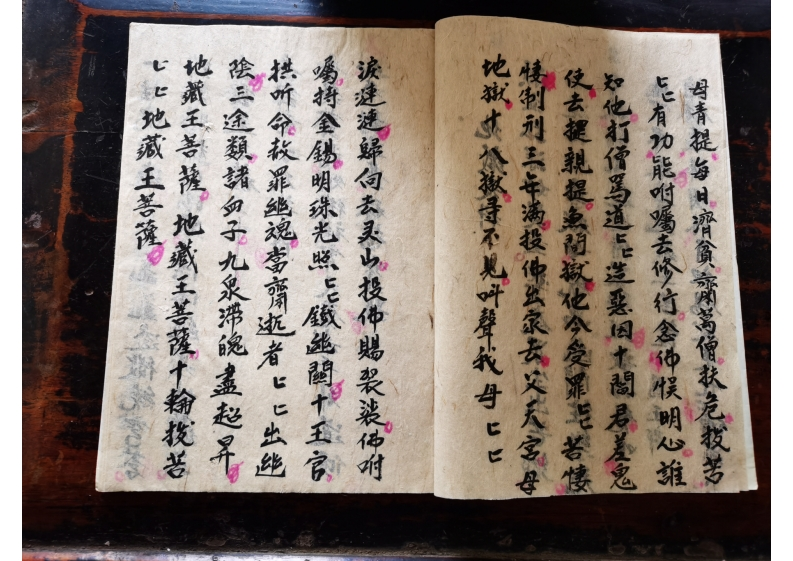 母青提每日濟貧齋萬僧扶危拔苦
匕匕有功能咐囑去修行念佛悮明心誰
知他打僧罵道匕匕造惡因十閻君差鬼
使去提親提無間獄他今受罪匕匕苦悽
悽制刑三年滿投佛出家去父天宮母
地獄十八獄尋不見叫聲我母匕匕
淚漣漣歸向去灵山投佛賜袈裟佛咐
囑持金錫明珠光照匕匕鐵幽關十王官
拱听命赦罪幽魂當齋逝者匕匕出幽
陰三途類諸血子九泉滯魄盡超昇
地藏王菩薩 地藏王菩薩十輪拔苦
匕匕地藏王菩薩